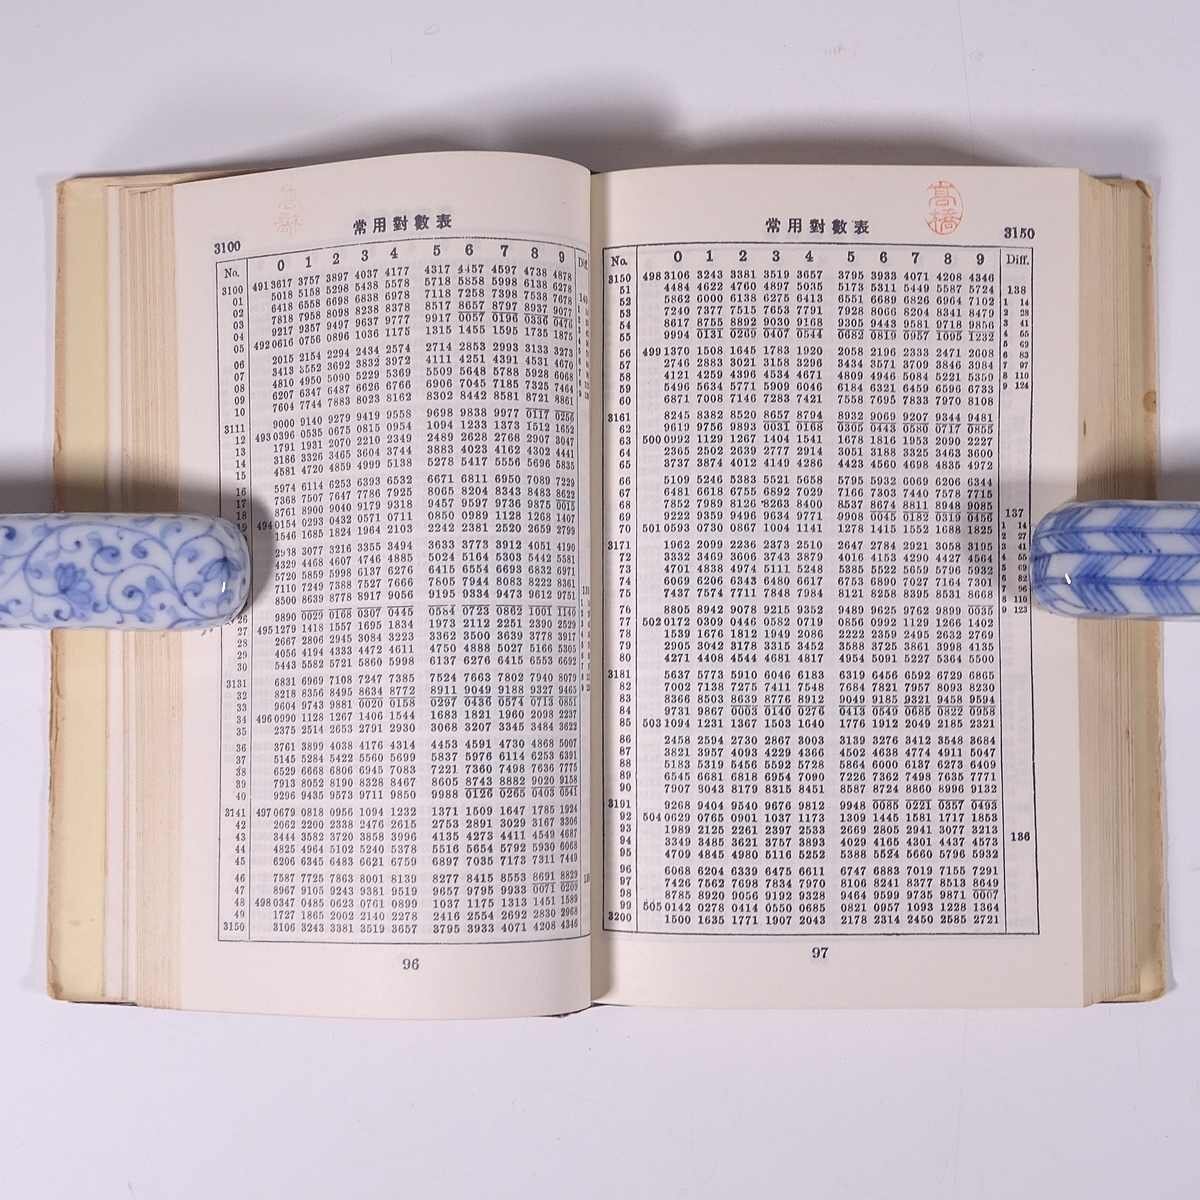 常用對數表
3100
No. 0 1 2 3 4 5 6 7 8 9 Diff.
3100 491 3617 3757 3897 4037 4177 4317 4457 4597 4738 4878
01 5018 5158 5298 5438 5578 5718 5858 5998 6138 6278
02 6418 6558 6698 6838 6978 7118 7258 7398 7538 7678
03 7818 7958 8098 8238 8378 8517 8657 8797 8937 9077
04 9217 9357 9497 9637 9777 9917 0057 0196 0336 0476
05 492 0616 0756 0896 1036 1175 1315 1455 1595 1735 1875
06 2015 2154 2294 2434 2574 2714 2853 2993 3133 3273
07 3413 3552 3692 3832 3972 4111 4251 4391 4531 4670
08 4810 4950 5090 5229 5369 5509 5648 5788 5928 6068
09 6207 6347 6487 6626 6766 6906 7045 7185 7325 7464
10 7604 7744 7883 8023 8162 8302 8442 8581 8721 8861
3111 9000 9140 9279 9419 9558 9698 9838 9977 0117 0256
12 493 0396 0535 0675 0815 0954 1094 1233 1373 1512 1652
13 1791 1931 2070 2210 2349 2489 2628 2768 2907 3047
14 3186 3326 3465 3604 3744 3883 4023 4162 4302 4441
15 4581 4720 4859 4999 5138 5278 5417 5556 5696 5835
16 5974 6114 6253 6393 6532 6671 6811 6950 7089 7229
17 7368 7507 7647 7786 7925 8065 8204 8343 8483 8622
18 8761 8900 9040 9179 9318 9457 9597 9736 9875 0015
19 494 0154 0293 0432 0571 0711 0850 0989 1128 1268 1407
1546 1685 1824 1964 2103 2242 2381 2520 2659 2799
2938 3077 3216 3355 3494 3633 3773 3912 4051 4190
4329 4468 4607 4746 4885 5024 5164 5303 5442 5581
5720 5859 5998 6137 6276 6415 6554 6693 6832 6971
7110 7249 7388 7527 7666 7805 7944 8083 8222 8361
8500 8639 8778 8917 9056 9195 9334 9473 9612 9751
26 9890 0029 0168 0307 0445 0584 0723 0862 1001 1140
27 495 1279 1418 1557 1695 1834 1973 2112 2251 2390 2529
28 2667 2806 2945 3084 3223 3362 3500 3639 3778 3917
29 4056 4194 4333 4472 4611 4750 4888 5027 5166 5305
30 5443 5582 5721 5860 5998 6137 6276 6415 6553 6692
3131 6831 6969 7108 7247 7385 7524 7663 7802 7940 8079
32 8218 8356 8495 8634 8772 8911 9049 9188 9327 9465
33 9604 9743 9881 0020 0158 0297 0436 0574 0713 0851
34 496 0990 1128 1267 1406 1544 1683 1821 1960 2098 2237
35 2375 2514 2653 2791 2930 3068 3207 3345 3484 3622
36 3761 3899 4038 4176 4314 4453 4591 4730 4868 5007
37 5145 5284 5422 5560 5699 5837 5976 6114 6253 6391
38 6529 6668 6806 6945 7083 7221 7360 7498 7636 7775
39 7913 8052 8190 8328 8467 8605 8743 8882 9020 9158
40 9296 9435 9573 9711 9850 9988 0126 0265 0403 0541
3141 497 0679 0818 0956 1094 1232 1371 1509 1647 1785 1924
42 2062 2200 2338 2476 2615 2753 2891 3029 3167 3306
43 3444 3582 3720 3858 3996 4135 4273 4411 4549 4687
44 4825 4964 5102 5240 5378 5516 5654 5792 5930 6068
45 6206 6345 6483 6621 6759 6897 7035 7173 7311 7449
46 7587 7725 7863 8001 8139 8277 8415 8553 8691 8829
47 8967 9105 9243 9381 9519 9657 9795 9933 0071 0209
48 498 0347 0485 0623 0761 0899 1037 1175 1313 1451 1589
49 1727 1865 2002 2140 2278 2416 2554 2692 2830 2968
3150 3106 3243 3381 3519 3657 3795 3933 4071 4208 4346
96
高橋
常用對數表
3150
No. 0 1 2 3 4 5 6 7 8 9 Diff.
3150 498 3106 3243 3381 3519 3657 3795 3933 4071 4208 4346
51 4484 4622 4760 4897 5035 5173 5311 5449 5587 5724 138
52 5862 6000 6138 6275 6413 6551 6689 6826 6964 7102 1 14
53 7240 7377 7515 7653 7791 7928 8066 8204 8341 8479 2 28
54 8617 8755 8892 9030 9168 9305 9443 9581 9718 9856 3 41
55 9994 0131 0269 0407 0544 0682 0819 0957 1095 1232 4 55
5 69
56 499 1370 1508 1645 1783 1920 2058 2196 2333 2471 2608 6 83
57 2746 2883 3021 3158 3296 3434 3571 3709 3846 3984 7 97
58 4121 4259 4396 4534 4671 4809 4946 5084 5221 5359 8 110
59 5496 5634 5771 5909 6046 6184 6321 6459 6596 6733 9 124
60 6871 7008 7146 7283 7421 7558 7695 7833 7970 8108
3161 8245 8382 8520 8657 8794 8932 9069 9207 9344 9481
62 9619 9756 9893 0031 0168 0305 0443 0580 0717 0855
63 500 0992 1129 1267 1404 1541 1678 1816 1953 2090 2227
64 2365 2502 2639 2777 2914 3051 3188 3325 3463 3600
65 3737 3874 4012 4149 4286 4423 4560 4698 4835 4972
66 5109 5246 5383 5521 5658 5795 5932 6069 6206 6344
67 6481 6618 6755 6892 7029 7166 7303 7440 7578 7715
68 7852 7989 8126 8263 8400 8537 8674 8811 8948 9085
69 9222 9359 9496 9634 9771 9908 0045 0182 0319 0456 137
70 501 0593 0730 0867 1004 1141 1278 1415 1552 1688 1825 1 14
2 27
3171 1962 2099 2236 2373 2510 2647 2784 2921 3058 3195 3 41
72 3332 3469 3606 3743 3879 4016 4153 4290 4427 4564 4 55
73 4701 4838 4974 5111 5248 5385 5522 5659 5796 5932 5 69
74 6069 6206 6343 6480 6617 6753 6890 7027 7164 7301 6 82
75 7437 7574 7711 7848 7984 8121 8258 8395 8531 8668 7 96
8 110
76 8805 8942 9078 9215 9352 9489 9625 9762 9899 0035 9 123
77 502 0172 0309 0446 0582 0719 0856 0992 1129 1266 1402
78 1539 1676 1812 1949 2086 2222 2359 2495 2632 2769
79 2905 3042 3178 3315 3452 3588 3725 3861 3998 4135
80 4271 4408 4544 4681 4817 4954 5091 5227 5364 5500
3181 5637 5773 5910 6046 6183 6319 6456 6592 6729 6865
82 7002 7138 7275 7411 7548 7684 7821 7957 8093 8230
83 8366 8503 8639 8776 8912 9049 9185 9321 9458 9594
84 9731 9867 0003 0140 0276 0413 0549 0685 0822 0958
85 503 1094 1231 1367 1503 1640 1776 1912 2049 2185 2321
86 2458 2594 2730 2867 3003 3139 3276 3412 3548 3684
87 3821 3957 4093 4229 4366 4502 4638 4774 4911 5047
88 5183 5319 5456 5592 5728 5864 6000 6137 6273 6409
89 6545 6681 6818 6954 7090 7226 7362 7498 7635 7771
90 7907 9043 8179 8315 8451 8587 8724 8860 8996 9132
3191 9268 9404 9540 9676 9812 9948 0085 0221 0357 0493
92 504 0629 0765 0901 1037 1173 1309 1445 1581 1717 1853
93 1989 2125 2261 2397 2533 2669 2805 2941 3077 3213 136
94 3349 3485 3621 3757 3893 4029 4165 4301 4437 4573
95 4709 4845 4980 5116 5252 5388 5524 5660 5796 5932
96 6068 6204 6339 6475 6611 6747 6883 7019 7155 7291
97 7426 7562 7698 7834 7970 8106 8241 8377 8513 8649
98 8785 8920 9056 9192 9328 9464 9599 9735 9871 0007
99 505 0142 0278 0414 0550 0685 0821 0957 1093 1228 1364
3200 1500 1635 1771 1907 2043 2178 2314 2450 2585 2721
97